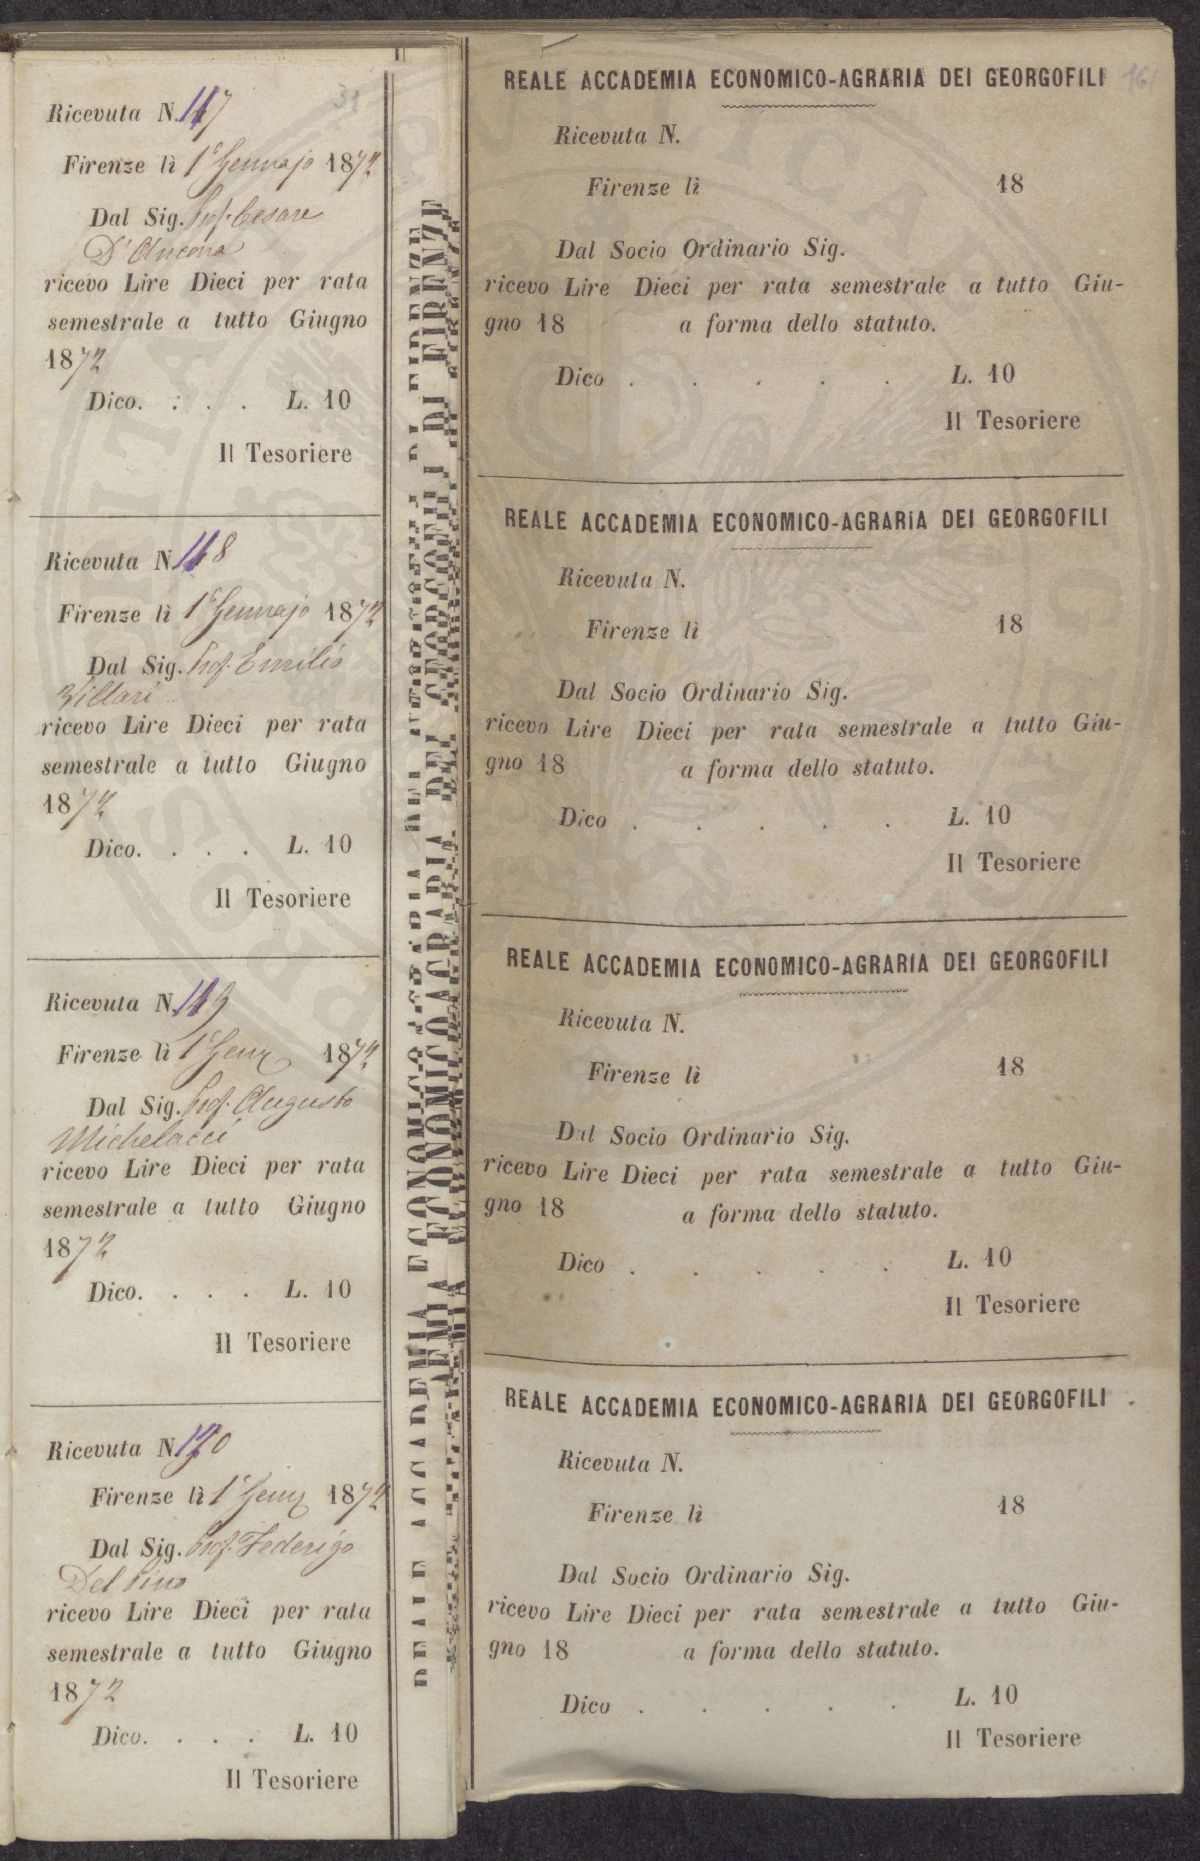 31
Ricevuta N. 117
Firenze lì 1° Gennajo 1872
Dal Sig. Prof. Cesare
D'Ancona
ricevo Lire Dieci per rata
semestrale a tutto Giugno
1872
Dico. . . . L. 10
Il Tesoriere
Ricevuta N. 118
Firenze lì 1° Gennajo 1872
Dal Sig. Prof. Emilio
Villari
ricevo Lire Dieci per rata
semestrale a tutto Giugno
1872
Dico. . . . L. 10
Il Tesoriere
Ricevuta N. 119
Firenze lì 1° Genn 1872
Dal Sig. Prof. Augusto
Michelacci
ricevo Lire Dieci per rata
semestrale a tutto Giugno
1872
Dico. . . . L. 10
Il Tesoriere
Ricevuta N. 120
Firenze lì 1° Genn 1872
Dal Sig. Prof. Federigo
Del Pino
ricevo Lire Dieci per rata
semestrale a tutto Giugno
1872
Dico. . . . L. 10
Il Tesoriere
REALE ACCADEMIA ECONOMICO-AGRARIA DEI GEORGOFILI DI FIRENZE
161
REALE ACCADEMIA ECONOMICO-AGRARIA DEI GEORGOFILI
Ricevuta N.
Firenze lì 18
Dal Socio Ordinario Sig.
ricevo Lire Dieci per rata semestrale a tutto Giu-
gno 18 a forma dello statuto.
Dico . . . . . L. 10
Il Tesoriere
REALE ACCADEMIA ECONOMICO-AGRARIA DEI GEORGOFILI
Ricevuta N.
Firenze lì 18
Dal Socio Ordinario Sig.
ricevo Lire Dieci per rata semestrale a tutto Giu-
gno 18 a forma dello statuto.
Dico . . . . . L. 10
Il Tesoriere
REALE ACCADEMIA ECONOMICO-AGRARIA DEI GEORGOFILI
Ricevuta N.
Firenze lì 18
Dal Socio Ordinario Sig.
ricevo Lire Dieci per rata semestrale a tutto Giu-
gno 18 a forma dello statuto.
Dico . . . . . L. 10
Il Tesoriere
REALE ACCADEMIA ECONOMICO-AGRARIA DEI GEORGOFILI
Ricevuta N.
Firenze lì 18
Dal Socio Ordinario Sig.
ricevo Lire Dieci per rata semestrale a tutto Giu-
gno 18 a forma dello statuto.
Dico . . . . . L. 10
Il Tesoriere